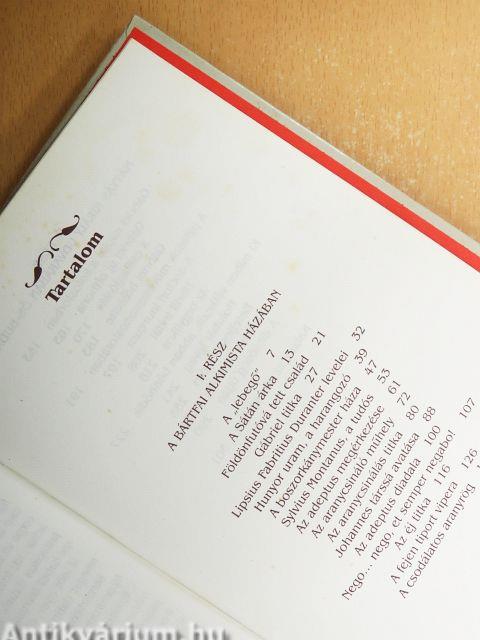 Tartalom
I. RÉSZ
A BÁRTFAI ALKIMISTA HÁZÁBAN
A „lebegő” 7
A Sátán árka 13
Földönfutóvá lett család 21
Gábriel titka 27
Lipsius Fabritius Duranter levelei 32
Hunyor uram, a harangozó 39
A boszorkánymester háza 47
Sylvius Montanus, a tudós 53
Az adeptus megérkezése 61
Az aranycsináló műhely 72
Az aranycsinálás titka 80
Johannes társsá avatása 88
Az adeptus diadala 100
Nego... nego, et semper negabo! 107
Az éj titka 116
A fejen tiport vipera 126
A csodálatos aranyrög
Antikvárium.hu